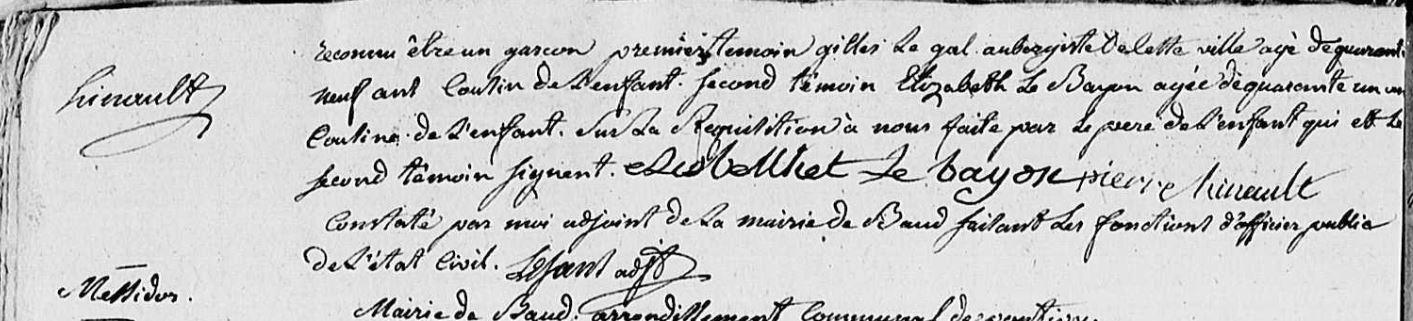 reconnu être un garcon premier temoin gilles Le gal aubergiste de cette ville agé de quarante
hinault
neuf ans Cousin de L'enfant. Second témoin Elizabeth Le Bayon agée de quarante un an
Cousine de L'enfant. Sur La Requisition à nous faite par Le pere de L'enfant qui et Le
second témoin signent. Le bayon pierre hinault
Constaté par moi adjoint de La mairie de Baud faisant Les fonctions d'officier public
de L'état Civil. adjt
Messidor.
Mairie de Baud. arrondissement Communal de pontivy